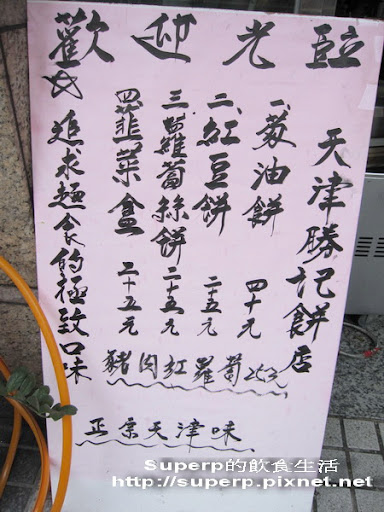 歡迎光臨
天津勝記餅店
一、葱油餅 四十元
二、紅豆餅 二五元
三、蘿蔔絲餅 二十五元
四、韮菜盒 二十五元
追求麵食的極致口味
豬肉紅蘿蔔25元
正宗天津味
Superp的飲食生活
http://superp.pixnet.net